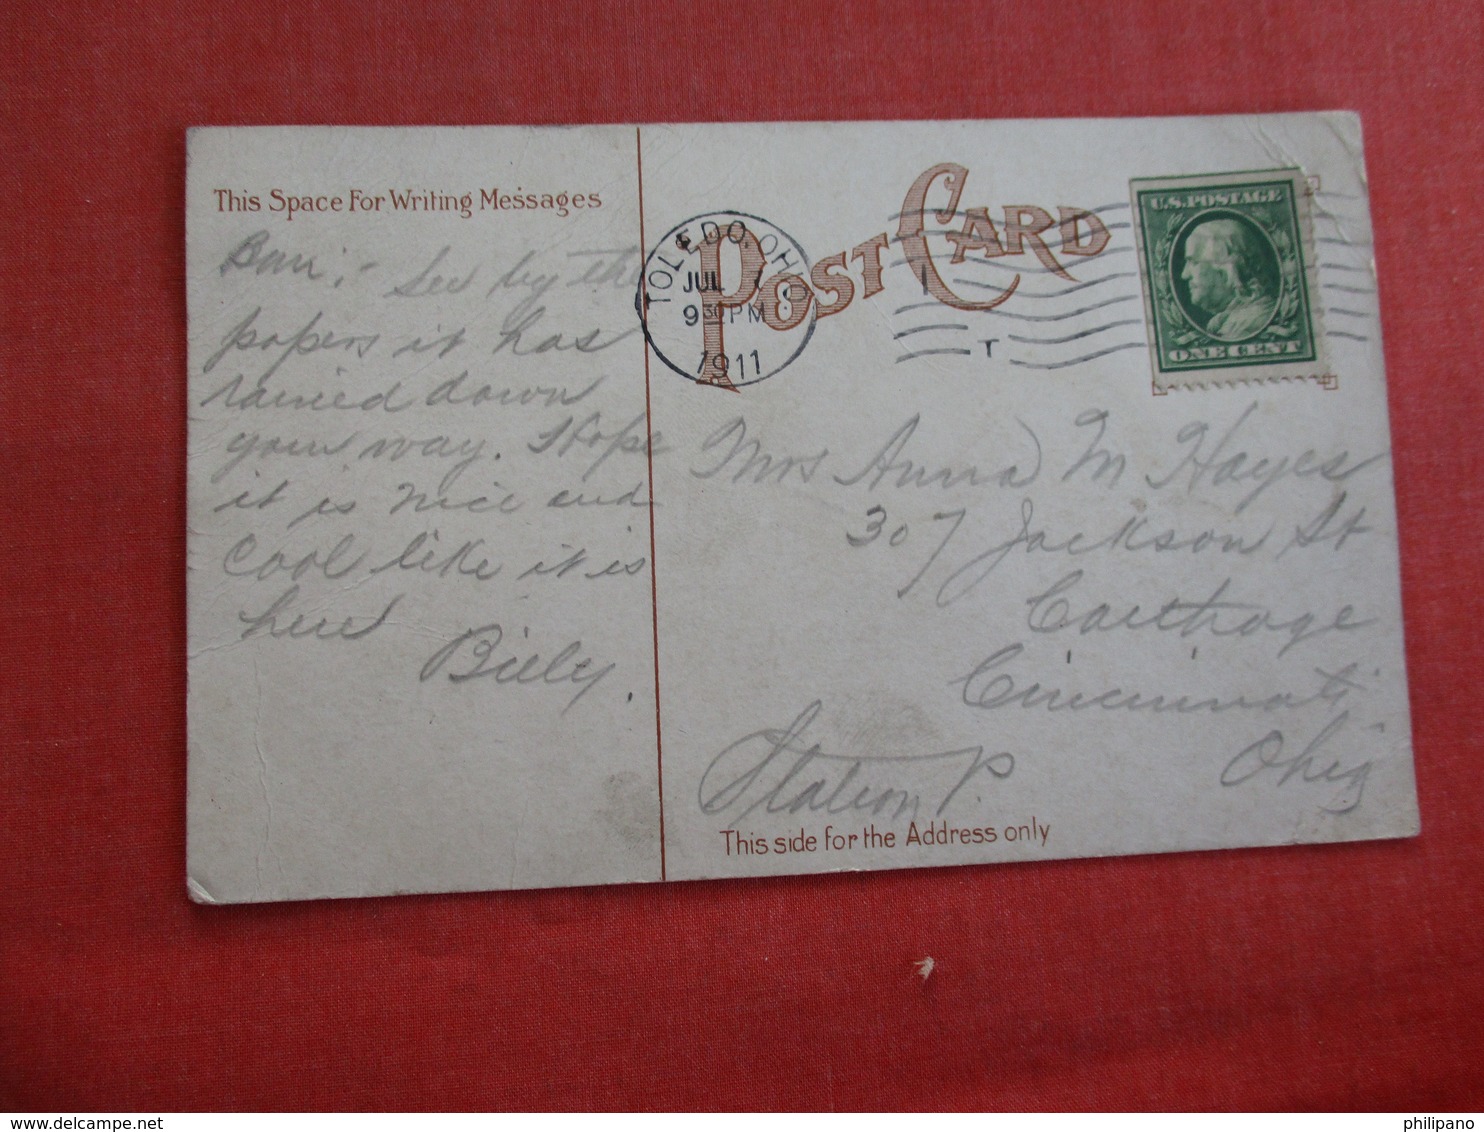 This Space For Writing Messages
POST CARD
TOLEDO, OHIO
JUL
9 30 PM
1911
T
U.S. POSTAGE
ONE CENT
See by the
papers it has
rained down
your way. I Hope
it is nice and
cool like it is
here
Billy.
Mrs Anna M Hayes
307 Jackson St
Carthage
Cincinnati
Ohio
Station P.
This side for the Address only
www.delcampe.net
philipano